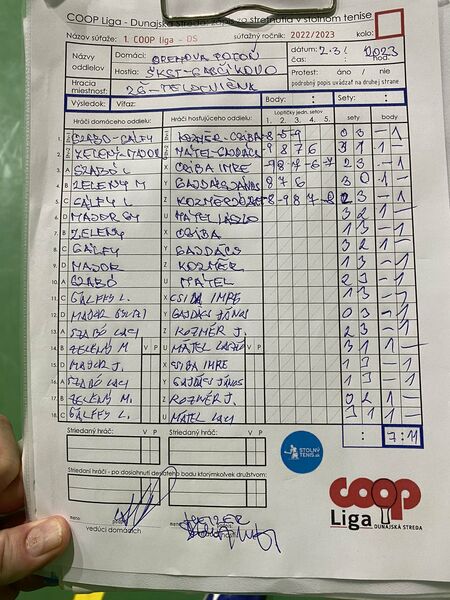 COOP Liga - Dunajská Streda: zápis zo stretnutia v stolnom tenise
Názov súťaže: 1. COOP liga - DS súťažný ročník: 2022/2023 kolo:
Názvy oddielov Domáci: OREHOVÁ POTÔŇ dátum: 2.3. 2023
Hostia: ŠKST-GABČÍKOVO čas: hod.
Hracia miestnosť: ZŠ-TELOCVIČŇA Protest: áno / nie
podrobný popis uvádzať na druhej strane
Výsledok: Víťaz: Body: : Sety: :
Hráči domáceho oddielu Hráči hosťujúceho oddielu Loptičky jedn. setov: sety body
1. 2. 3. 4. 5.
1. SZABÓ-GÁLFY KOZMÉR-CSIBA 8 5 9 0 3 - 1
2. ZELENÝ-MAJOR MÁTEL-GAJDÁCS -9 8 7 6 3 1 1 -
3. A SZABÓ L X CSIBA IMRE 2 3 - 1
4. B ZELENÝ M Y GAJDÁCS JÁNOS 8 7 6 3 0 1 -
5. C GÁLFY L Z KOZMÉR JÓZSEF 2 3 - 1
6. D MAJOR GY U MÁTEL LÁSZLÓ 3 2 1 -
7. B ZELENY X CSIBA 1 3 - 1
8. C GÁLFY Y GAJDÁCS 3 2 1 -
9. D MAJOR Z KOZMÉR 1 3 - 1
10. A SZABÓ U MÁTEL 2 3 - 1
11. C GÁLFFY L. X CSIBA IMRE 1 3 - 1
12. D MAJOR Y GAJDÁCS JÁNOS 0 3 - 1
13. A SZABÓ LACI Z KOZMÉR J. 2 3 - 1
14. B ZELENÝ M V P U MÁTEL LASZLÓ V P 3 1 1 -
15. D MAJOR J. X CSIBA IMRE 1 3 - 1
16. A SZABÓ LACI Y GAJDÁCS JÁNOS 1 3 - 1
17. B ZELENÝ M. Z KOZMÉR J.
18. C GÁLFFY L. U MÁTEL LACI 3 1 1 -
Striedaný hráč: V P Striedaný hráč: V P : 7:11
STOLNÝ TENIS.sk
Striedaní hráči - po dosiahnutí desiateho bodu ktorýmkoľvek družstvom:
meno:
vedúci domácich
coop
Liga DUNAJSKÁ STREDA